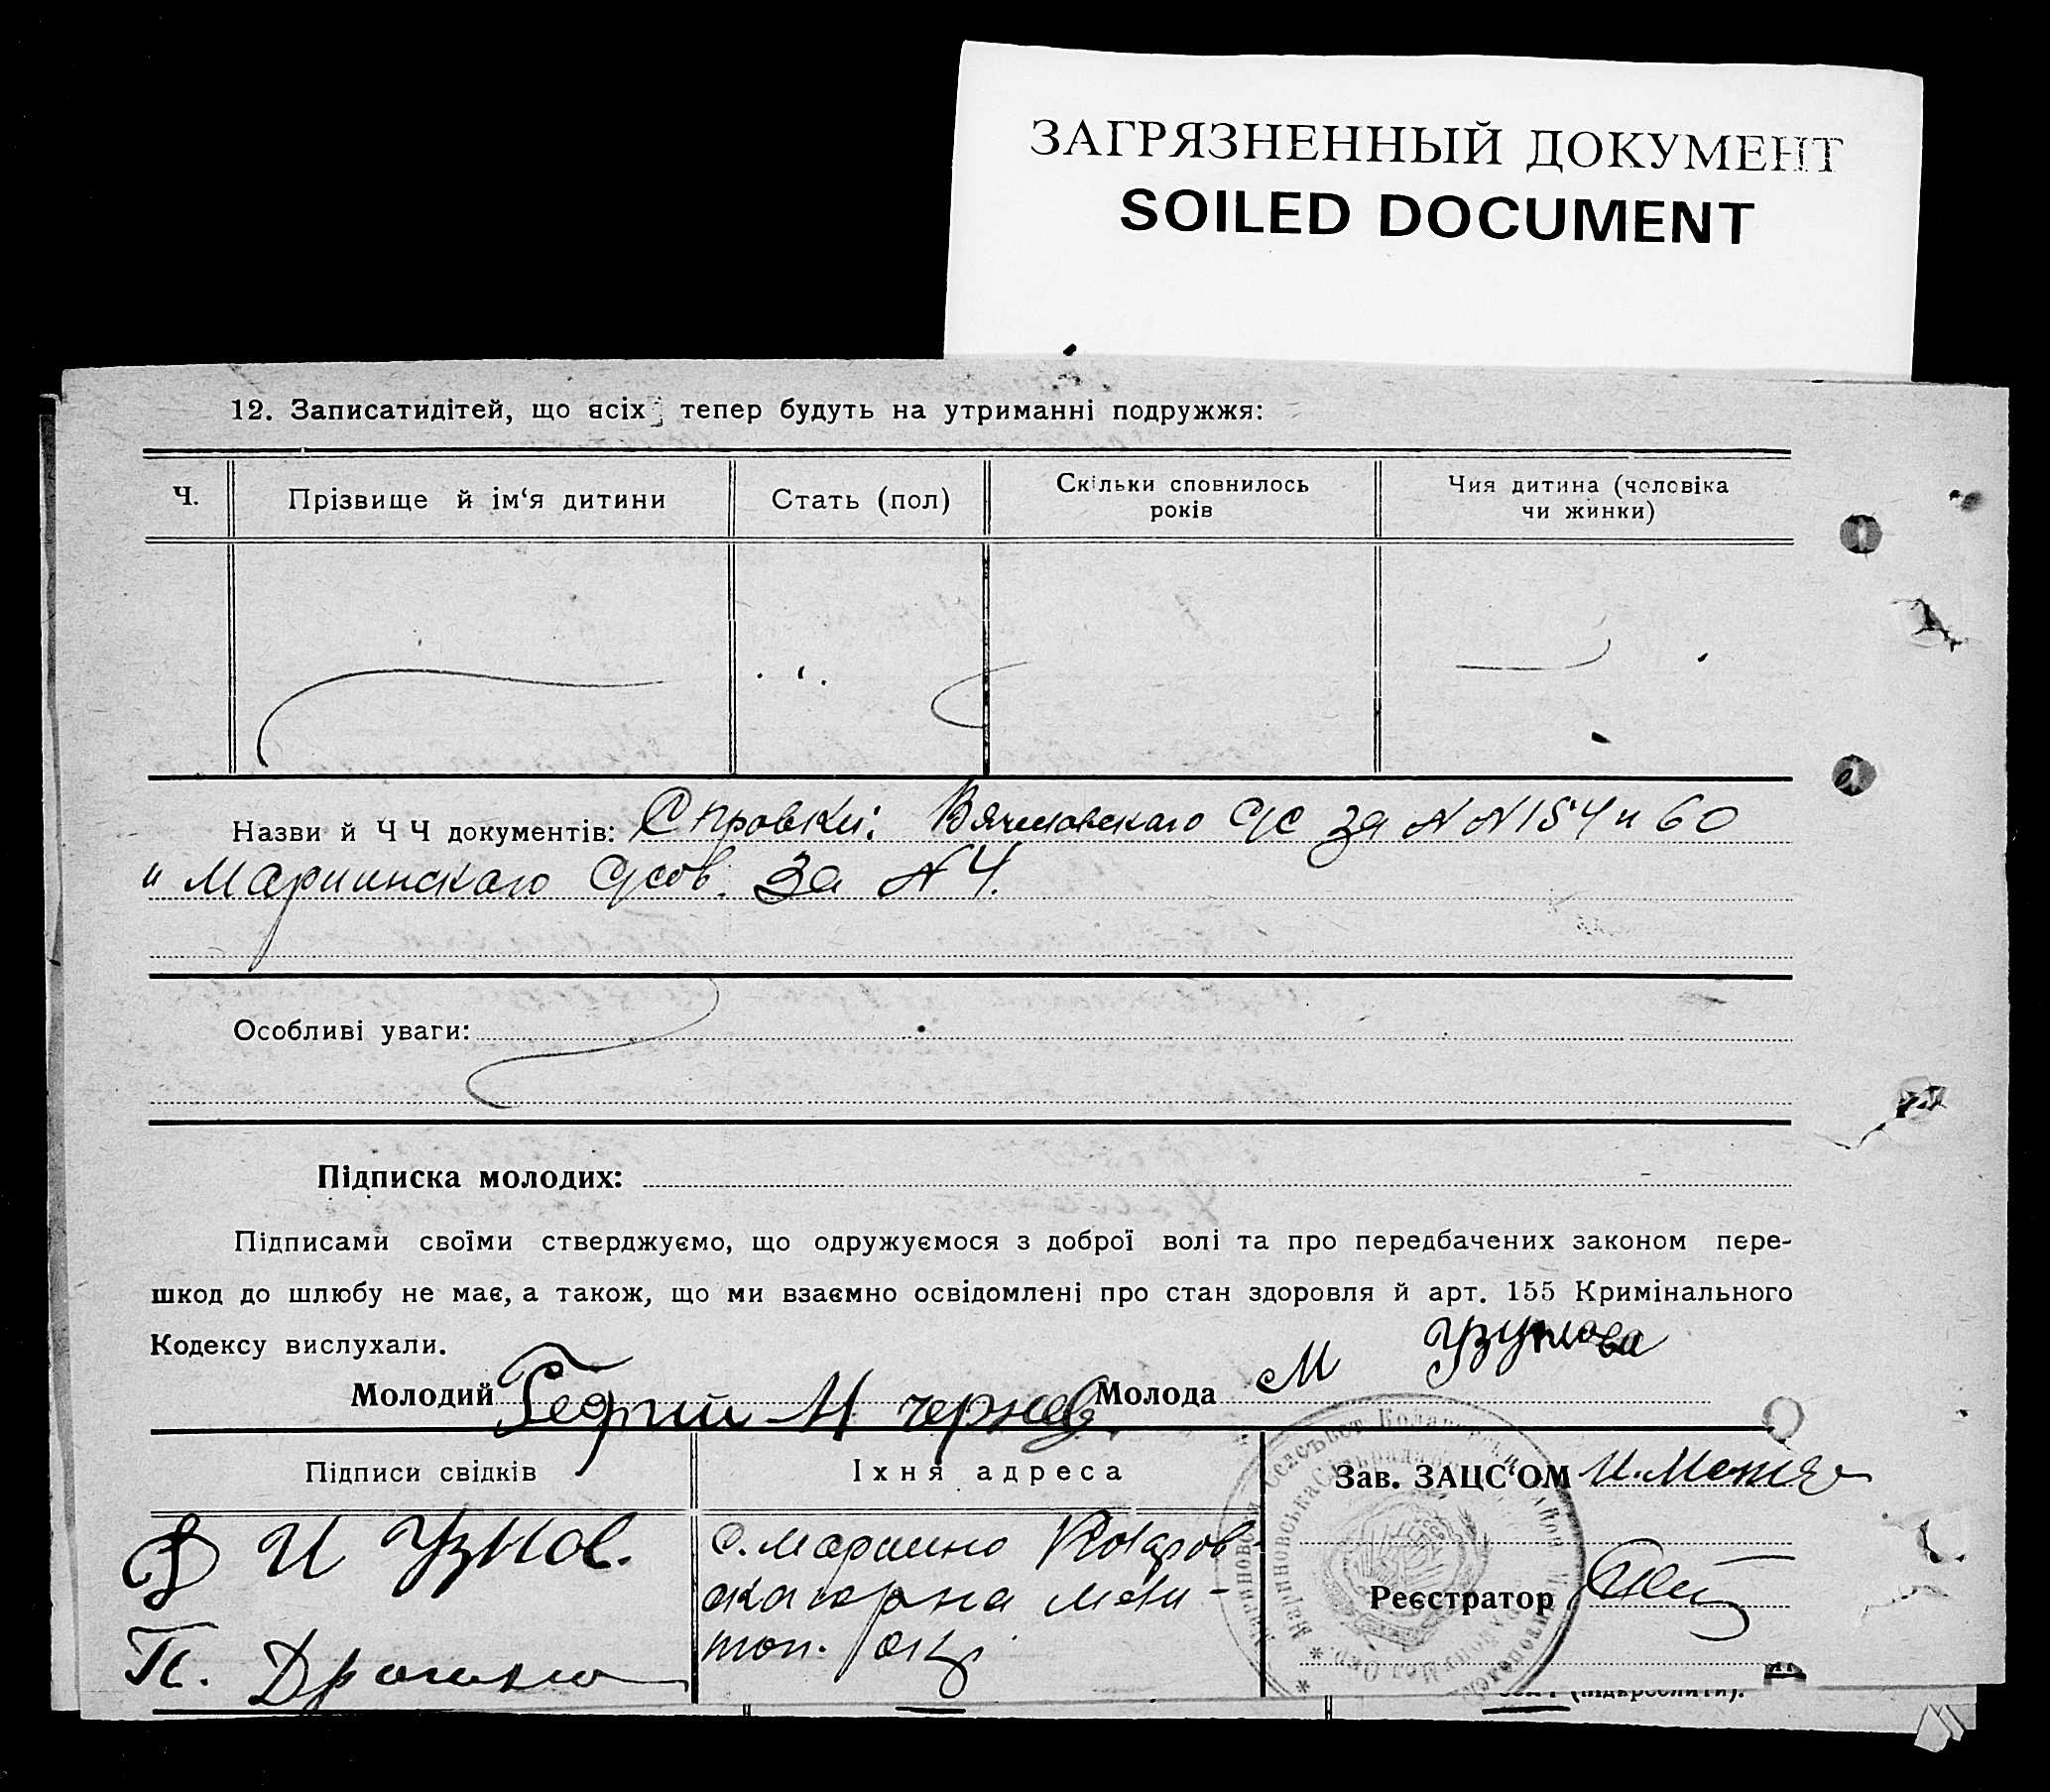 ЗАГРЯЗНЕННЫЙ ДОКУМЕНТ
SOILED DOCUMENT
12. Записатидітей, що всіх тепер будуть на утриманні подружжя:
Ч.
Прізвище й ім‘я дитини
Стать (пол)
Скільки сповнилось
років
Чия дитина (чоловіка
чи жинки)
Назви й Ч Ч документів: Справки: Вячеславскаго с/с за NN 154 и 60
и Мариинскаго с/сов. за N 4.
Особливі уваги:
Підписка молодих:
Підписами своїми стверджуємо, що одружуємося з доброї волі та про передбачених законом пере-
шкод до шлюбу не має, а також, що ми взаємно освідомлені про стан здоровля й арт. 155 Кримінального
Кодексу вислухали.
Молодий Георгий И чернев Молода М Узунова
Підписи свідків
Їхня адреса
Зав. ЗАЦС‘ОМ
И Узнов.
с. Марино
Реєстратор
П.
(підкреслити).